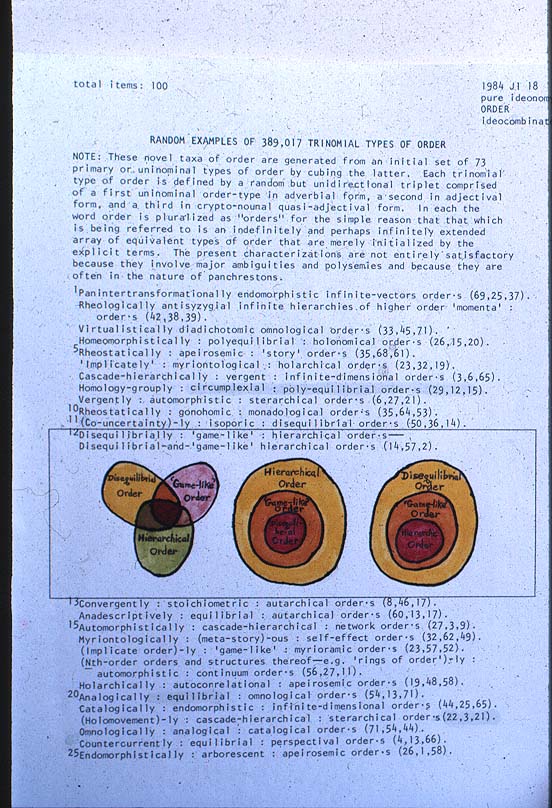 total items: 100
1984 J1 18
pure ideonom
ORDER
ideocombinat
RANDOM EXAMPLES OF 389,017 TRINOMIAL TYPES OF ORDER
NOTE: These novel taxa of order are generated from an initial set of 73
primary or uninominal types of order by cubing the latter. Each trinomial
type of order is defined by a random but unidirectional triplet comprised
of a first uninominal order-type in adverbial form, a second in adjectival
form, and a third in crypto-nounal quasi-adjectival form. In each the
word order is pluralized as "orders" for the simple reason that that which
is being referred to is an indefinitely and perhaps infinitely extended
array of equivalent types of order that are merely initialized by the
explicit terms. The present characterizations are not entirely satisfactory
because they involve major ambiguities and polysemies and because they are
often in the nature of panchrestons.
1Panintertransformationally endomorphistic infinite-vectors order·s (69,25,37).
Rheologically antisyzygial infinite hierarchies of higher order 'momenta' :
order·s (42,38,39).
Virtualistically diadichotomic omnological order·s (33,45,71).
Homeomorphistically : polyequilibrial : holonomical order·s (26,15,20).
5Rheostatically : apeirosemic : 'story' order·s (35,68,61).
'Implicately' : myriontological : holarchical order·s (23,32,19).
Cascade-hierarchically : vergent : infinite-dimensional order·s (3,6,65).
Homology-grouply : circumplexial : poly-equilibrial order·s (29,12,15).
Vergently : automorphistic : sterarchical order·s (6,27,21).
10Rheostatically : gonohomic : monadological order·s (35,64,53).
11(Co-uncertainty)-ly : isoporic : disequilibrial order·s (50,36,14).
12Disequilibrially : 'game-like' : hierarchical order·s—
Disequilibrial-and-'game-like' hierarchical order·s (14,57,2).
Disequilibrial Order
"Game-like" Order
Hierarchical Order
Hierarchical Order
"Game-like" Order
Disequilibrial Order
Disequilibrial Order
"Game-like" Order
Hierarchic Order
13Convergently : stoichiometric : autarchical order·s (8,46,17).
Anadescriptively : equilibrial : autarchical order·s (60,13,17).
15Automorphistically : cascade-hierarchical : network order·s (27,3,9).
Myriontologically : (meta-story)-ous : self-effect order·s (32,62,49).
(Implicate order)-ly : 'game-like' : myrioramic order·s (23,57,52).
(Nth-order orders and structures thereof—e.g. 'rings of order')-ly :
automorphistic : continuum order·s (56,27,11).
Holarchically : autocorrelational : apeirosemic order·s (19,48,58).
20Analogically : equilibrial : omnological order·s (54,13,71).
Catalogically : endomorphistic : infinite-dimensional order·s (44,25,65).
(Holomovement)-ly : cascade-hierarchical : sterarchical order·s(22,3,21).
Omnologically : analogical : catalogical order·s (71,54,44).
Countercurrently : equilibrial : perspectival order·s (4,13,66).
25Endomorphistically : arborescent : apeirosemic order·s (26,1,58).